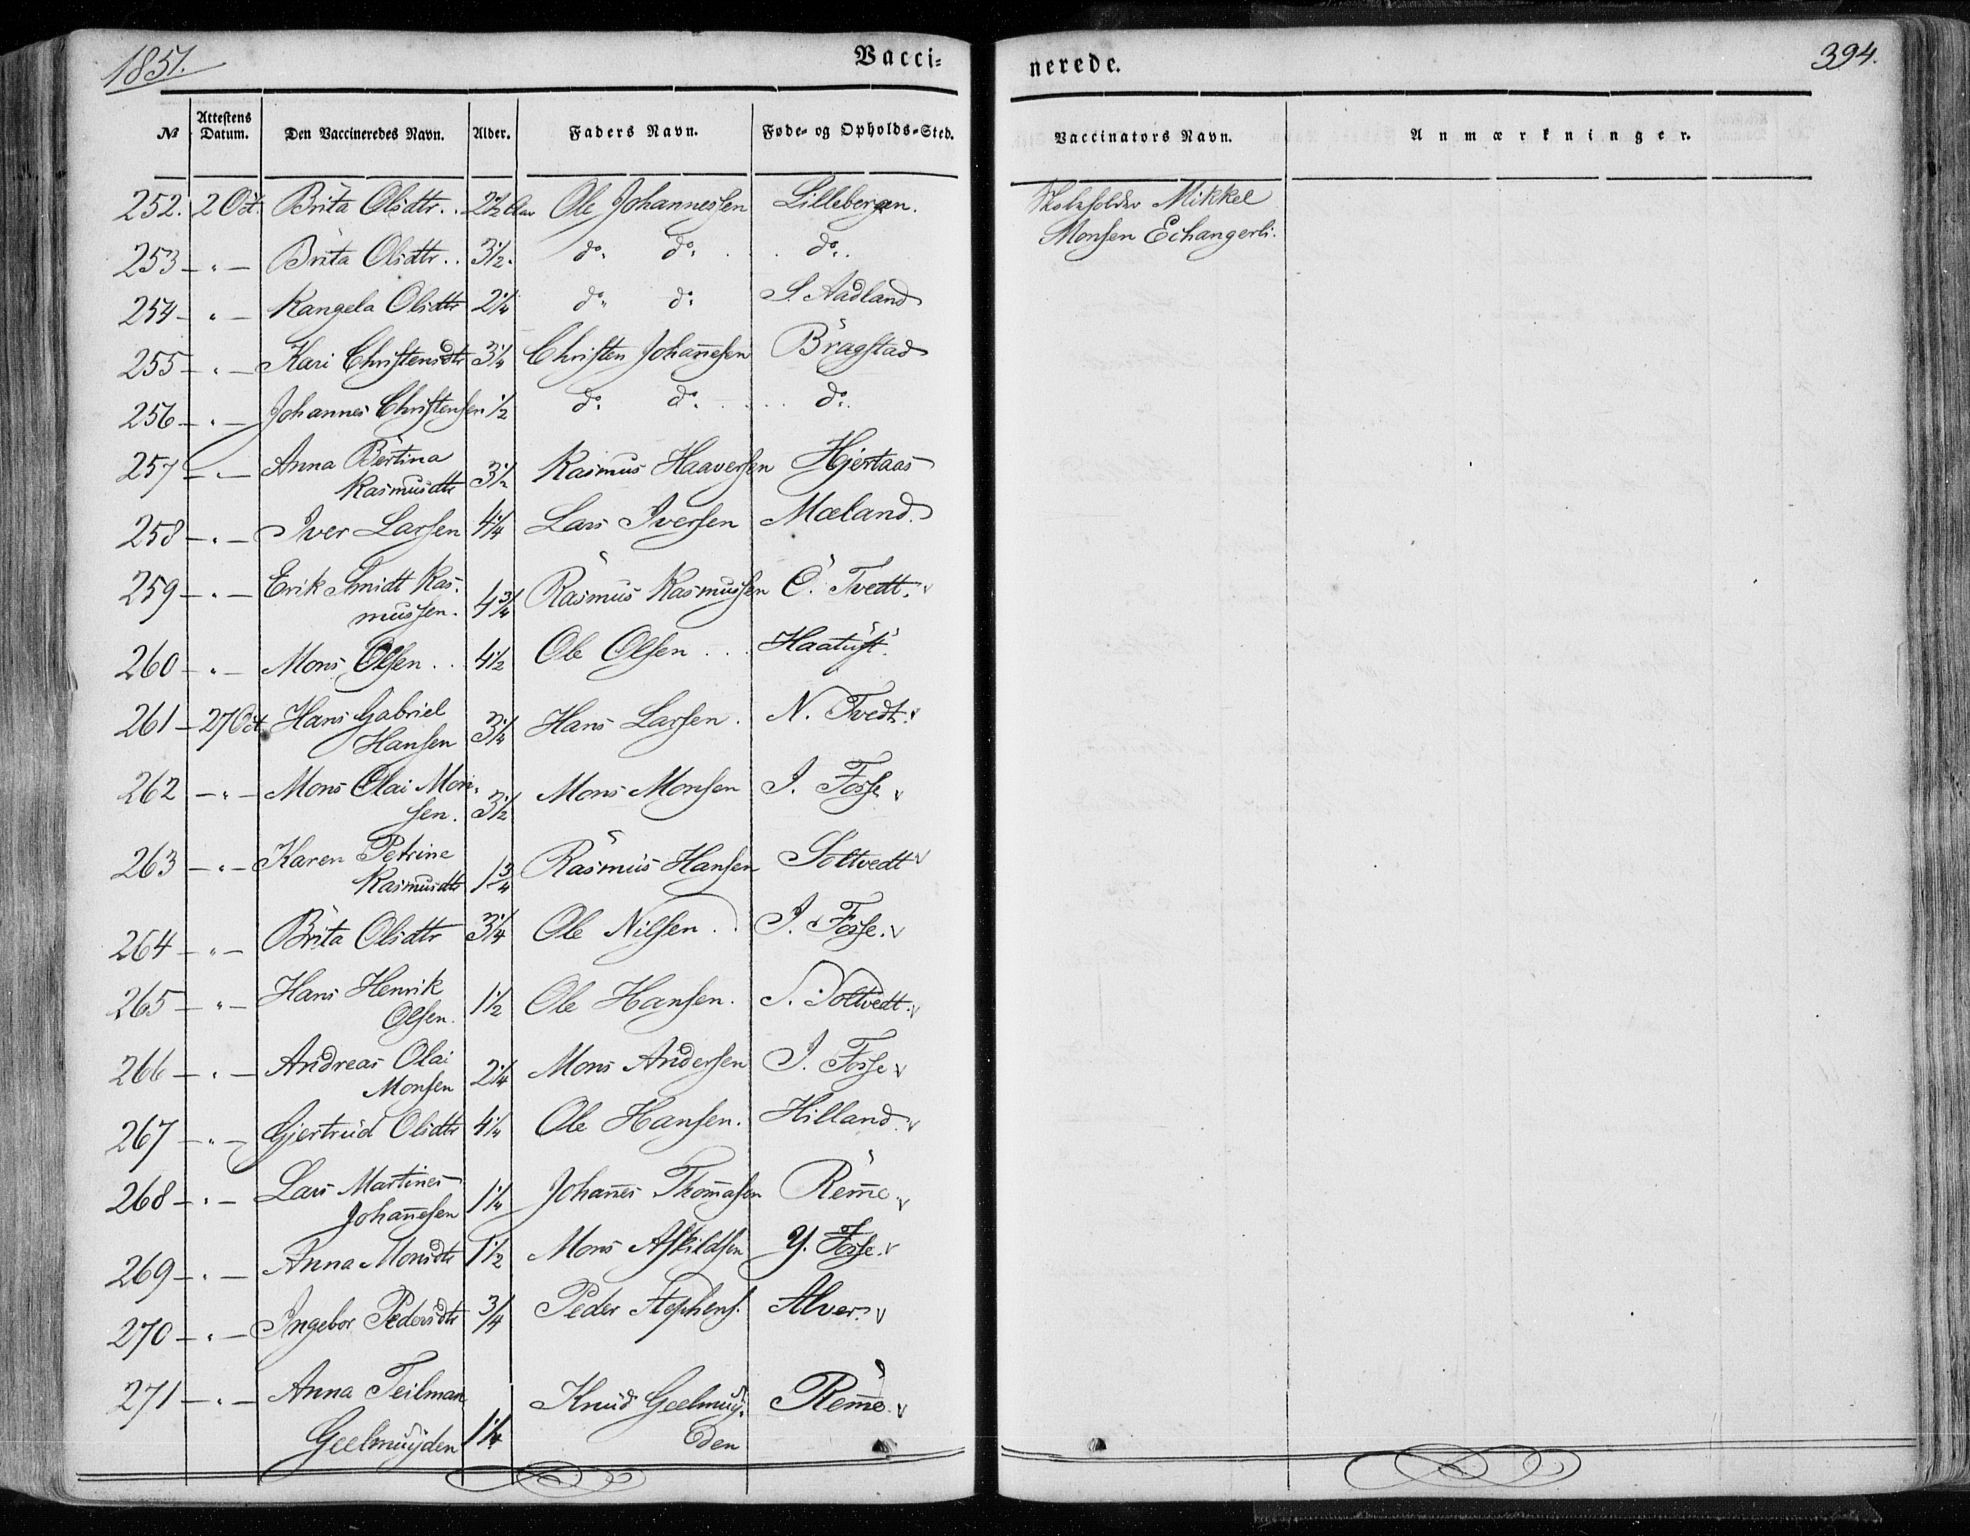 1851.
Vacci-
nerede.
394.
No Attestens Datum. Den Vaccineredes Navn. Alder. Faders Navn. Føde- og Opholds-Sted. Vaccinators Navn. Anmærkninger.
252. 2 Oct. Brita Olsdtr. 2 1/2 Aar Ole Johannessen Lillebergen. Skoleholder Mikkel
Monsen Echangerli.
253 - " - Brita Olsdtr. 3 1/2. do. do. do.
254 - " - Rangela Olsdtr 2 1/4 do. do. S. Aadland
255 - " - Kari Christensdtr 3 1/4 Christen Johañesen Bragstad
256 - " - Johannes Christensen 1/2 do. do. do.
257 - " - Anna Bertina
Rasmusdtr 3 1/2 Rasmus Haaversen Hjertaas
258 - " - Iver Larsen 4 1/4 Lars Iversen Mæland.
259 - " - Erik Smidt Ras-
mussen. 4 3/4 Rasmus Rasmussen Ö. Tvedt.
260 - " - Mons Olsen. 4 1/2 Ole Olsen Haatuft.
261 - 27 Oct. Hans Gabriel
Hansen 3 1/4 Hans Larsen. N. Tvedt.
262 - " - Mons Olai Mon-
sen. 3 1/2 Mons Monsen I. Fosse
263 - " - Karen Petrine
Rasmusdtr 1 3/4 Rasmus Hansen Soltvedt
264 - " - Brita Olsdtr 3 1/4 Ole Nilsen. I. Fosse.
265 - " - Hans Henrik
Olsen. 1 1/2 Ole Hansen. S. Soltvedt.
266 - " - Andreas Olai
Monsen 2 1/4 Mons Andersen I. Fosse
267 - " - Gjertrud Olsdtr 4 1/4 Ole Hansen. Hilland.
268 - " - Lars Martines
Johañesen 1 1/4 Johañes Thomasen Rem̃e
269 - " - Anna Monsdtr 1 1/2 Mons Askildsen Y. Fosse.
270 - " - Ingebor Pedersdtr 3/4 Peder Stephens. Alver.
271 - " - Anna Teilman
Geelmuyden 1 1/4 Knud Geelmuy-
den Rem̃e.